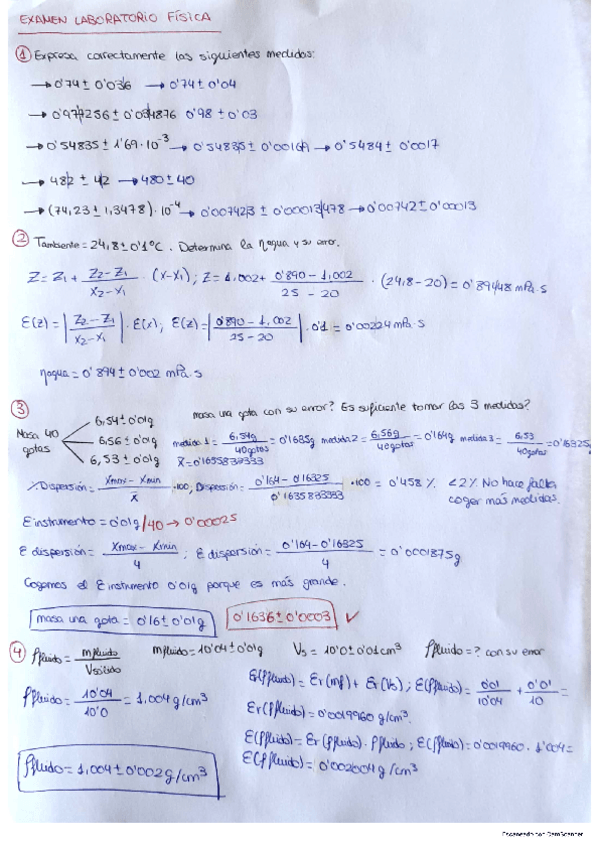 EXAMEN LABORATORIO FÍSICA
① Expresa correctamente las siguientes medidas:
→ 0'74 ± 0'036 → 0'74 ± 0'04
→ 0'977256 ± 0'034876 0'98 ± 0'03
→ 0'54835 ± 1'69·10⁻³ → 0'54835 ± 0'00169 → 0'5484 ± 0'0017
→ 482 ± 42 → 480 ± 40
→ (74,23 ± 1,3478)·10⁻⁴ → 0'007423 ± 0'00013478 → 0'00742 ± 0'00013
② Tambiente = 24,8 ± 0'1ºC. Determina la ηagua y su error.
Z = Z₁ + (Z₂ - Z₁)/(x₂ - x₁) · (x - x₁); Z = 1.002 + (0'890 - 1,002)/(25 - 20) · (24,8 - 20) = 0'89448 mPa·s
Ɛ(z) = |(Z₂ - Z₁)/(x₂ - x₁)| · Ɛ(x); Ɛ(z) = |(0'890 - 1,002)/(25 - 20)| · 0'1 = 0'00224 mPa·s
ηagua = 0'894 ± 0'002 mPa·s
③ masa una gota con su error? Es suficiente tomar las 3 medidas?
Masa 40 gotas
6,54 ± 0'01g
6,56 ± 0'01g
6,53 ± 0'01g
medida 1 = 6,54g/40gotas = 0'1635g medida 2 = 6,56g/40gotas = 0'164g medida 3 = 6,53/40gotas = 0'16325g
x̄ = 0'1635833333
% Dispersión = (xmax - xmin)/x̄ · 100; Dispersión = (0'164 - 0'16325)/0'1635833333 · 100 = 0'458 % < 2% No hace falta
coger más medidas.
Ɛ instrumento = 0'01g/40 → 0'00025
Ɛ dispersión = (xmax - xmin)/4; Ɛ dispersión = (0'164 - 0'16325)/4 = 0'0001875g
Cogemos el Ɛ instrumento 0'01g porque es más grande.
masa una gota = 0'16 ± 0'01g 0'1636 ± 0'0003 ✓
④ ρfluido = mfluido/Vsólido mfluido = 10'04 ± 0'01g Vs = 10'0 ± 0'01cm³ ρfluido = ? con su error
ρfluido = 10'04/10'0 = 1,004 g/cm³
Ɛr(ρfluido) = Ɛr(mf) + Ɛr(Vs); Ɛ(ρfluido) = 0'01/10'04 + 0'01/10 =
Ɛr(ρfluido) = 0'0019960 g/cm³.
Ɛ(ρfluido) = Ɛr(ρfluido) · ρfluido; Ɛ(ρfluido) = 0'0019960 · 1'004 =
Ɛ(ρfluido) = 0'002004 g/cm³
ρfluido = 1,004 ± 0'002 g/cm³
Escaneado con CamScanner